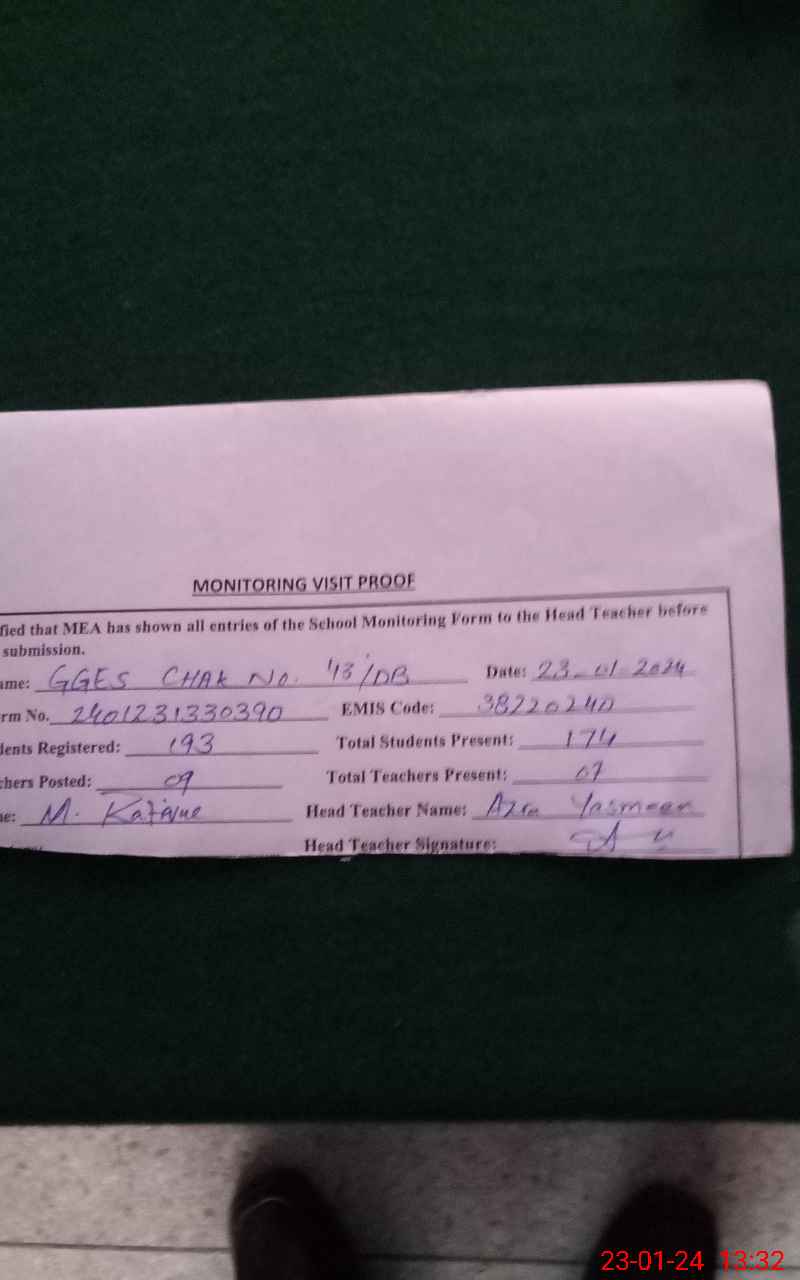 MONITORING VISIT PROOF
fied that MEA has shown all entries of the School Monitoring Form to the Head Teacher before
submission.
ame: GGES CHAK No. 43/DB Date: 23-01-2024
rm No. 2401231330390 EMIS Code: 38220240
dents Registered: 193 Total Students Present: 174
chers Posted: 09 Total Teachers Present: 07
ne: M. Head Teacher Name: Azra Yasmeen
Head Teacher Signature:
23-01-24 13:32